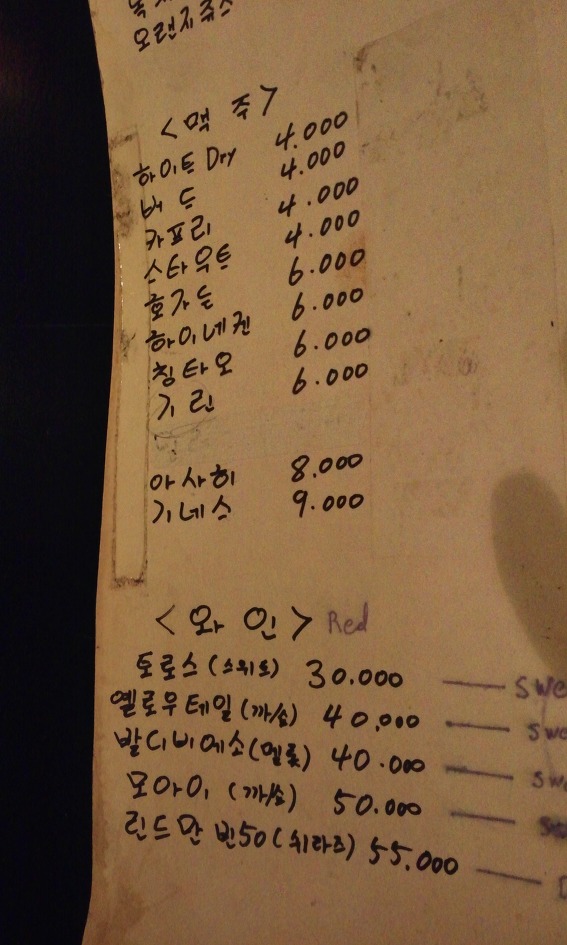 오랜지쥬스
<맥 주>
하이트 Dry 4.000
버드 4.000
카프리 4.000
스타우트 4.000
호가든 6.000
하이네켄 6.000
칭타오 6.000
기린 6.000
아사히 8.000
기네스 9.000
<와 인> Red
토로스 (스위트) 30.000 — swe
옐로우테일 (까/쇼) 40.000 — swe
발디비에소 (멜롯) 40.000 — sw
모아이 (까/쇼) 50.000
린드만 빈50 (쉬라즈) 55.000